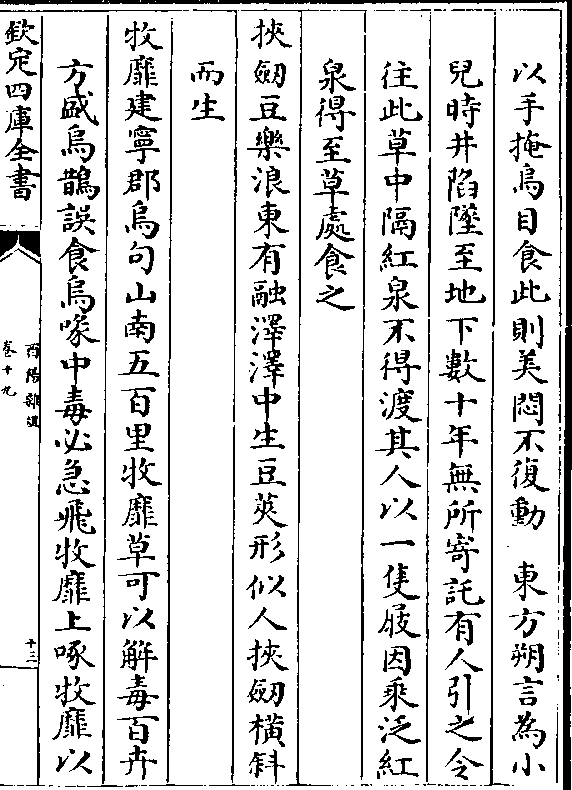 以手掩烏目食此則美悶不復動　東方朔言為小
兒時井陷墜至地下數十年無所寄託有人引之令
往此草中隔紅泉不得渡其人以一隻屐因乘泛紅
泉得至草處食之
挾劒豆樂浪東有融澤澤中生豆莢形似人挾劒橫斜
而生
牧靡建寧郡烏句山南五百里牧靡草可以解毒百卉
方盛烏鵲誤食烏喙中毒必急飛牧靡上啄牧靡以
欽定四庫全書
酉陽雜俎
卷十九
十三